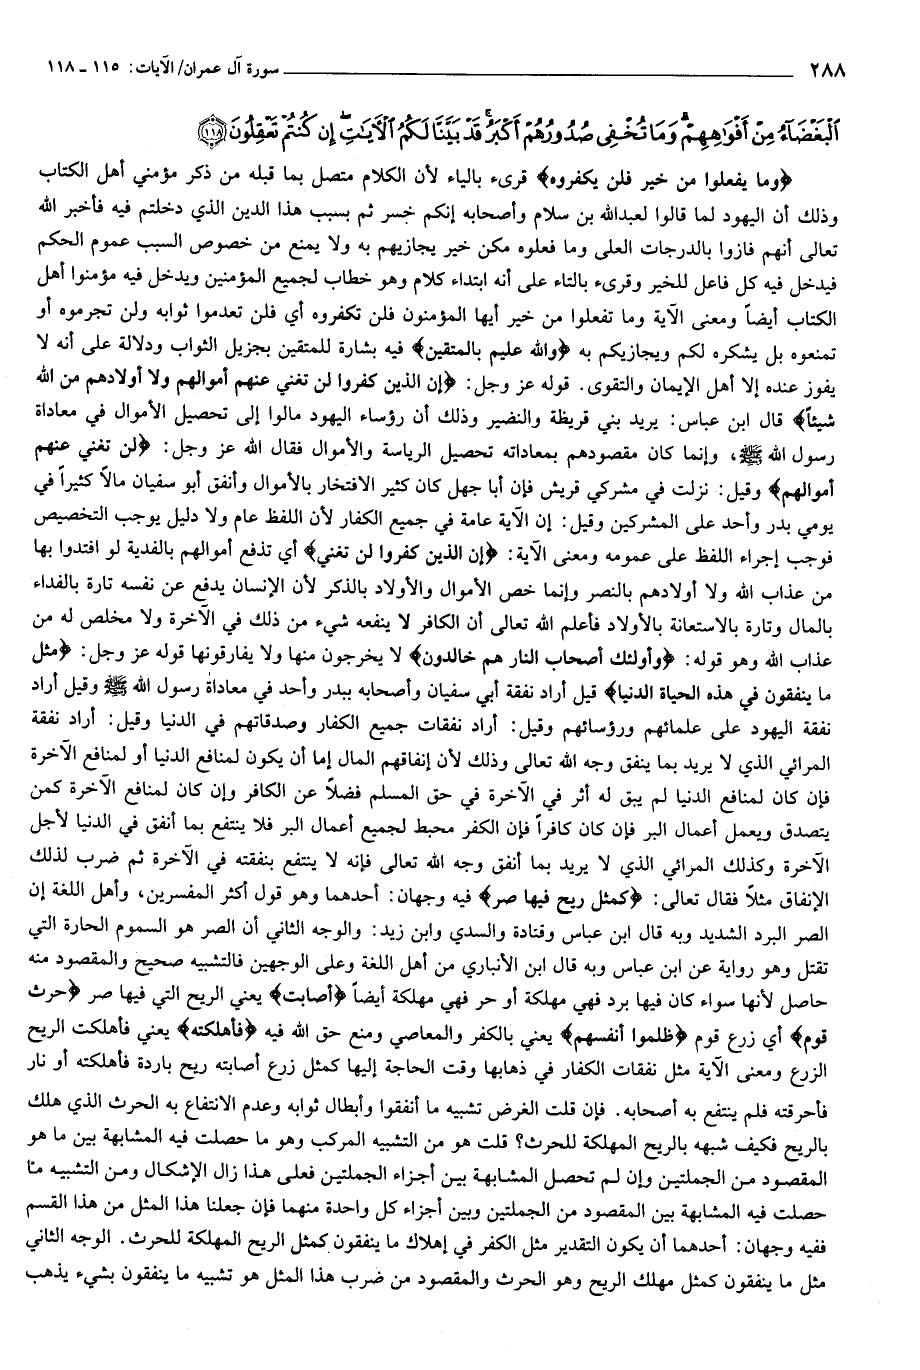 ٢٨٨ سورة آل عمران/ الآيات: ١١٥ ـ ١١٨
ٱلْبَغْضَآءُ مِنْ أَفْوَٰهِهِمْ وَمَا تُخْفِى صُدُورُهُمْ أَكْبَرُ قَدْ بَيَّنَّا لَكُمُ ٱلْءَايَٰتِ إِن كُنتُمْ تَعْقِلُونَ ﴿١١٨﴾
﴿وما يفعلوا من خير فلن يكفروه﴾ قرىء بالياء لأن الكلام متصل بما قبله من ذكر مؤمني أهل الكتاب
وذلك أن اليهود لما قالوا لعبدالله بن سلام وأصحابه إنكم خسر ثم بسبب هذا الدين الذي دخلتم فيه فأخبر الله
تعالى أنهم فازوا بالدرجات العلى وما فعلوه مكن خير يجازيهم به ولا يمنع من خصوص السبب عموم الحكم
فيدخل فيه كل فاعل للخير وقرىء بالتاء على أنه ابتداء كلام وهو خطاب لجميع المؤمنين ويدخل فيه مؤمنوا أهل
الكتاب أيضاً ومعنى الآية وما تفعلوا من خير أيها المؤمنون فلن تكفروه أي فلن تعدموا ثوابه ولن تجرموه أو
تمنعوه بل يشكره لكم ويجازيكم به ﴿والله عليم بالمتقين﴾ فيه بشارة للمتقين بجزيل الثواب ودلالة على أنه لا
يفوز عنده إلا أهل الإيمان والتقوى. قوله عز وجل: ﴿إن الذين كفروا لن تغني عنهم أموالهم ولا أولادهم من الله
شيئاً﴾ قال ابن عباس: يريد بني قريظة والنضير وذلك أن رؤساء اليهود مالوا إلى تحصيل الأموال في معاداة
رسول الله ﷺ، وإنما كان مقصودهم بمعاداته تحصيل الرياسة والأموال فقال الله عز وجل: ﴿لن تغني عنهم
أموالهم﴾ وقيل: نزلت في مشركي قريش فإن أبا جهل كان كثير الافتخار بالأموال وأنفق أبو سفيان مالاً كثيراً في
يومي بدر وأحد على المشركين وقيل: إن الآية عامة في جميع الكفار لأن اللفظ عام ولا دليل يوجب التخصيص
فوجب إجراء اللفظ على عمومه ومعنى الآية: ﴿إن الذين كفروا لن تغني﴾ أي تذفع أموالهم بالفدية لو افتدوا بها
من عذاب الله ولا أولادهم بالنصر وإنما خص الأموال والأولاد بالذكر لأن الإنسان يدفع عن نفسه تارة بالفداء
بالمال وتارة بالاستعانة بالأولاد فأعلم الله تعالى أن الكافر لا ينفعه شيء من ذلك في الآخرة ولا مخلص له من
عذاب الله وهو قوله: ﴿وأولئك أصحاب النار هم خالدون﴾ لا يخرجون منها ولا يفارقونها قوله عز وجل: ﴿مثل
ما ينفقون في هذه الحياة الدنيا﴾ قيل أراد نفقة أبي سفيان وأصحابه ببدر وأحد في معاداة رسول الله ﷺ وقيل أراد
نفقة اليهود على علمائهم ورؤسائهم وقيل: أراد نفقات جميع الكفار وصدقاتهم في الدنيا وقيل: أراد نفقة
المرائي الذي لا يريد بما ينفق وجه الله تعالى وذلك لأن إنفاقهم المال إما أن يكون لمنافع الدنيا أو لمنافع الآخرة
فإن كان لمنافع الدنيا لم يبق له أثر في الآخرة في حق المسلم فضلاً عن الكافر وإن كان لمنافع الآخرة كمن
يتصدق ويعمل أعمال البر فإن كان كافراً فإن الكفر محبط لجميع أعمال البر فلا ينتفع بما أنفق في الدنيا لأجل
الآخرة وكذلك المرائي الذي لا يريد بما أنفق وجه الله تعالى فإنه لا ينتفع بنفقته في الآخرة ثم ضرب لذلك
الإنفاق مثلاً فقال تعالى: ﴿كمثل ريح فيها صر﴾ فيه وجهان: أحدهما وهو قول أكثر المفسرين، وأهل اللغة إن
الصر البرد الشديد وبه قال ابن عباس وقتادة والسدي وابن زيد: والوجه الثاني أن الصر هو السموم الحارة التي
تقتل وهو رواية عن ابن عباس وبه قال ابن الأنباري من أهل اللغة وعلى الوجهين فالتشبيه صحيح والمقصود منه
حاصل لأنها سواء كان فيها برد فهي مهلكة أو حر فهي مهلكة أيضاً ﴿أصابت﴾ يعني الريح التي فيها صر ﴿حرث
قوم﴾ أي زرع قوم ﴿ظلموا أنفسهم﴾ يعني بالكفر والمعاصي ومنع حق الله فيه ﴿فأهلكته﴾ يعني فأهلكت الريح
الزرع ومعنى الآية مثل نفقات الكفار في ذهابها وقت الحاجة إليها كمثل زرع أصابته ريح باردة فأهلكته أو نار
فأحرقته فلم ينتفع به أصحابه. فإن قلت الغرض تشبيه ما أنفقوا وأبطال ثوابه وعدم الانتفاع به الحرث الذي هلك
بالريح فكيف شبهه بالريح المهلكة للحرث؟ قلت هو من التشبيه المركب وهو ما حصلت فيه المشابهة بين ما هو
المقصود من الجملتين وإن لم تحصل المشابهة بين أجزاء الجملتين فعلى هذا زال الإشكال ومن التشبيه ما
حصلت فيه المشابهة بين المقصود من الجملتين وبين أجزاء كل واحدة منهما فإن جعلنا هذا المثل من هذا القسم
ففيه وجهان: أحدهما أن يكون التقدير مثل الكفر في إهلاك ما ينفقون كمثل الريح المهلكة للحرث. الوجه الثاني
مثل ما ينفقون كمثل مهلك الريح وهو الحرث والمقصود من ضرب هذا المثل هو تشبيه ما ينفقون بشيء يذهب